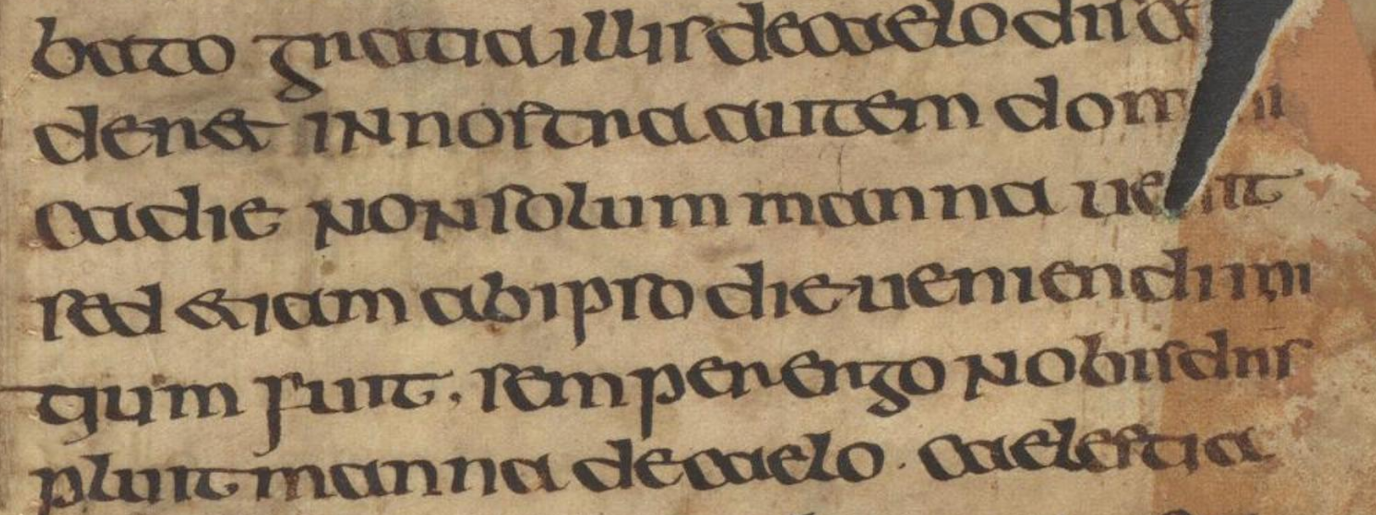 bato gratia illis de caelo
der& in nostra autem dom ni
ca die non solum manna ue it
sed &iam ab ipso die ueniendi ini
tium fuit. semper ergo nobis dns
pluit manna de caelo. caelestia